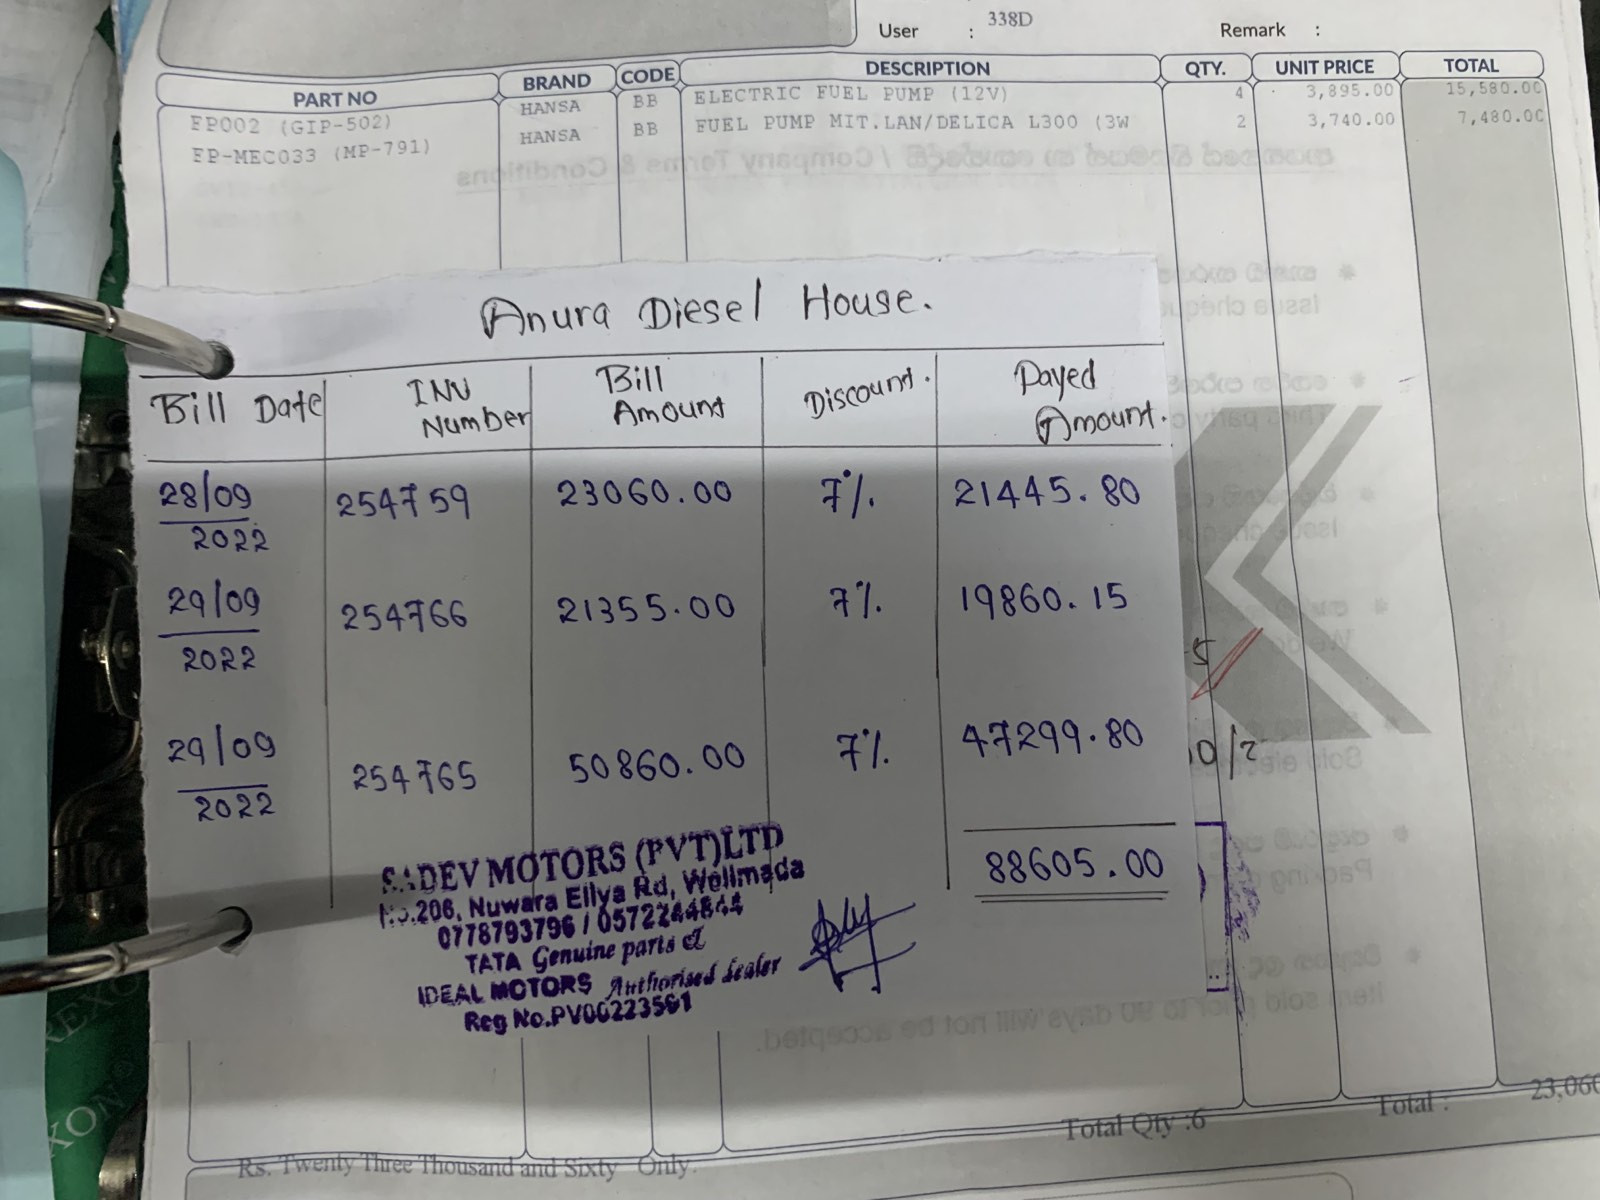 User : 338D Remark :
PART NO BRAND CODE DESCRIPTION QTY. UNIT PRICE TOTAL
FP002 (GIP-502) HANSA BB ELECTRIC FUEL PUMP (12V) 4 3,895.00 15,580.00
FP-MEC033 (MP-791) HANSA BB FUEL PUMP MIT.LAN/DELICA L300 (3W 2 3,740.00 7,480.00
Anura Diesel House.
Bill Date INV Number Bill Amount Discount. Payed Amount.
28/09 2022 254759 23060.00 7% 21445.80
29/09 2022 254766 21355.00 7% 19860.15
29/09 2022 254765 50860.00 7% 47299.80
88605.00
SADEV MOTORS (PVT)LTD
No.206, Nuwara Eliya Rd, Welimada
0778793796 / 0572244844
TATA Genuine parts &
IDEAL MOTORS Authorised dealer
Reg No.PV00223561
Total Qty :6 Total : 23,060
Rs. Twenty Three Thousand and Sixty Only.